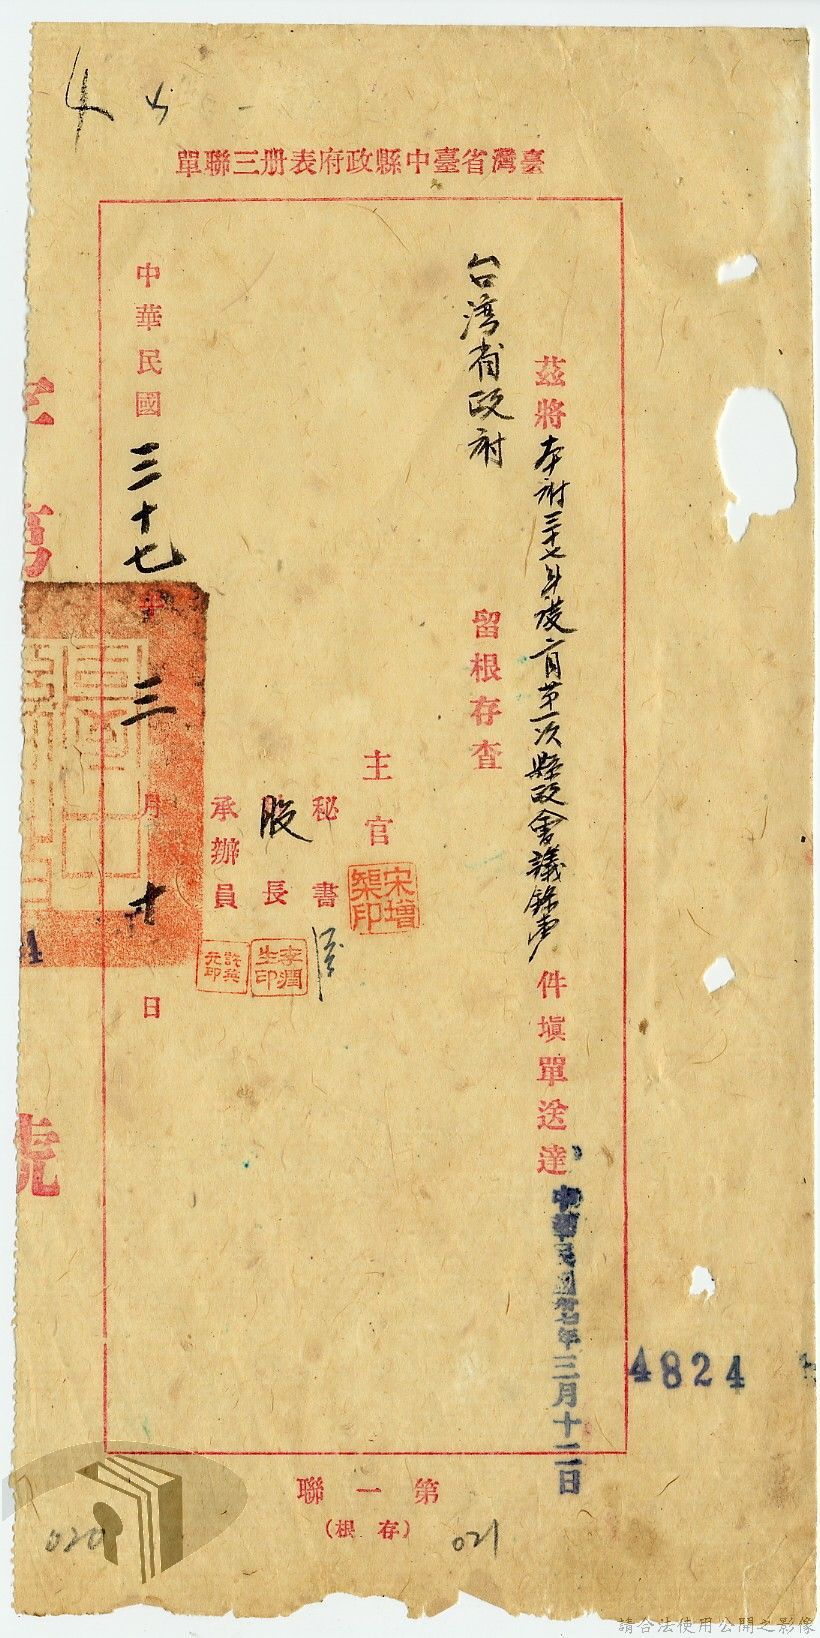 臺灣省臺中縣政府表册三聯單
茲將本府三十七年度二月第一次縣政會議錄壹件填單送達
台湾省政府
留根存查
主官
宋增榘印
秘書
股長
李潤生印
承辦員
許英元印
中華民國三十七年三月十日
字第
號
中華民國卅七年三月十二日
4824
第一聯
(存根)
020
021
請合法使用公開之影像